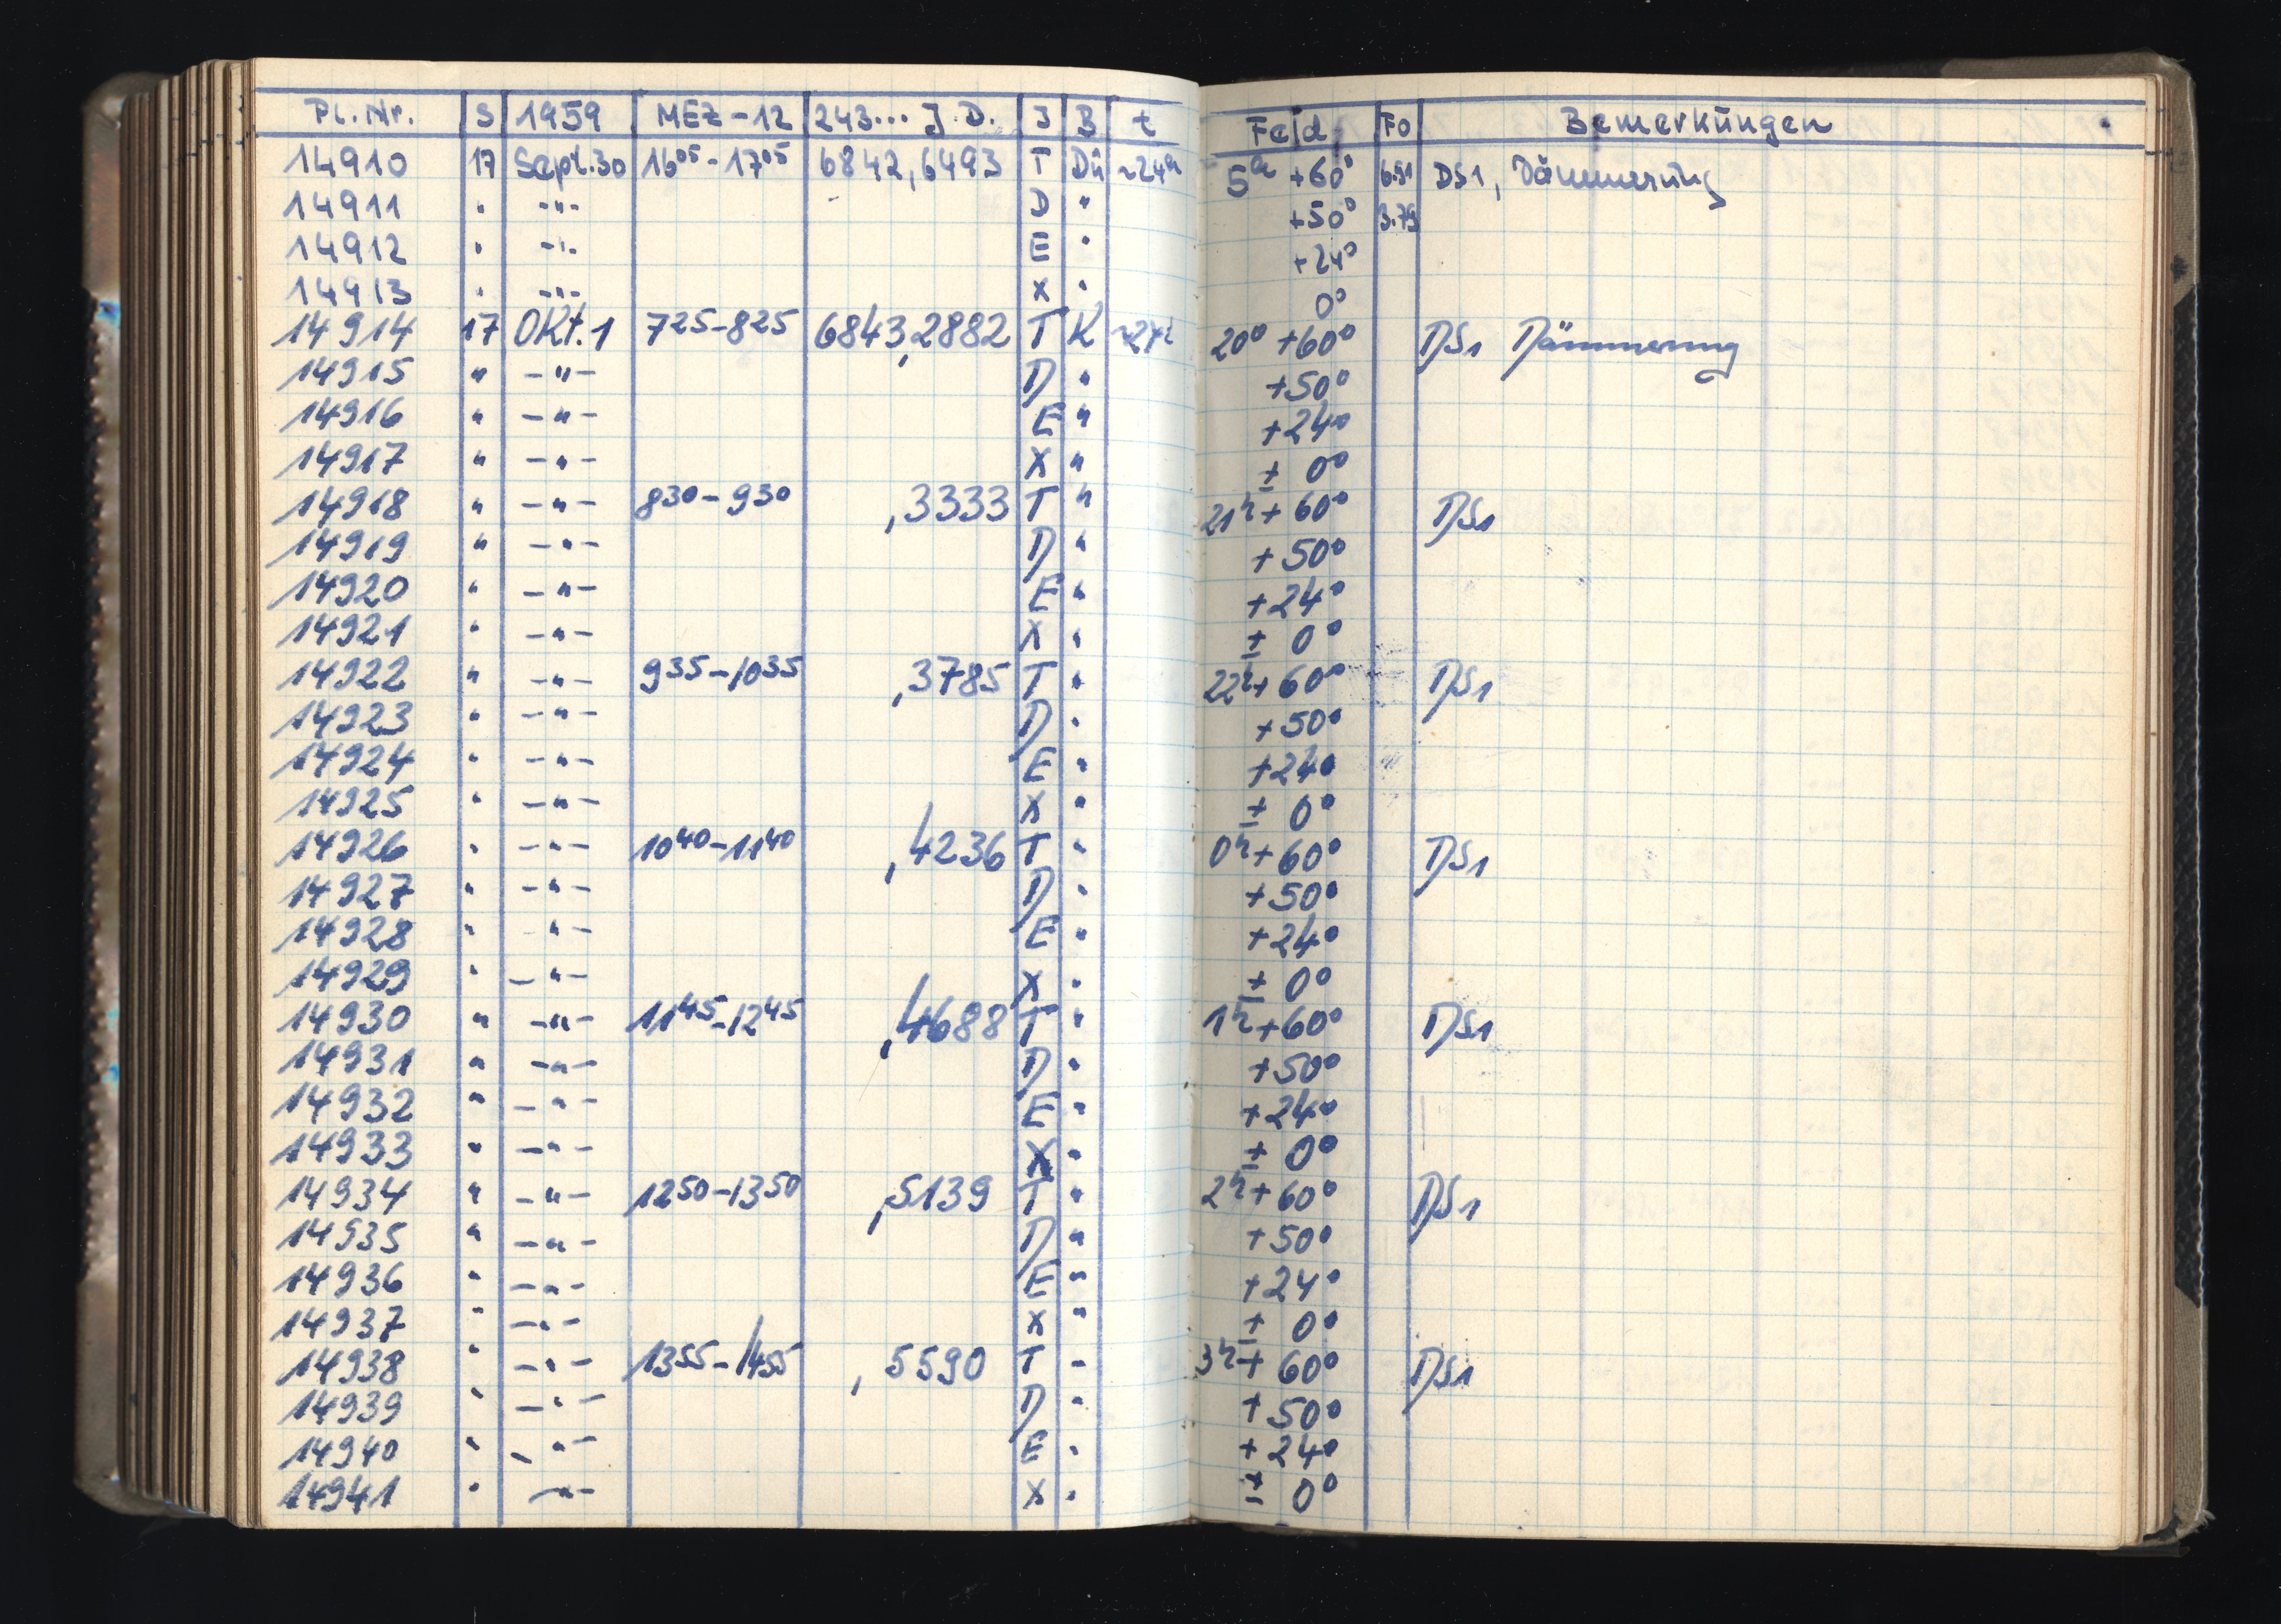 Pl. Nr. S 1959 MEZ-12 243... J.D. J B t Feld Fo Bemerkungen
14910 17 Sept.30 16⁰⁵-17⁰⁵ 6842,6493 T Dü +60° DS1, Dämmerung
14911 " -"- D " +50° 3.79
14912 " -"- E " +24°
14913 " -"- X " 0°
14914 17 Okt.1 7²⁵-8²⁵ 6843,2882 T K 20⁰ +60° DS1 Dämmerung
14915 " -"- D " +50°
14916 " -"- E " +24°
14917 " -"- X " ± 0°
14918 " -"- 8³⁰-9³⁰ ,3333 T " 21ʰ+60° DS1
14919 " -"- D " +50°
14920 " -"- E " +24°
14921 " -"- X " ± 0°
14922 " -"- 9³⁵-10³⁵ ,3785 T " 22ʰ+60° DS1
14923 " -"- D " +50°
14924 " -"- E " +24°
14925 " -"- X " ± 0°
14926 " -"- 10⁴⁰-11⁴⁰ ,4236 T " 0ʰ+60° DS1
14927 " -"- D " +50°
14928 " -"- E " +24°
14929 " -"- X " ± 0°
14930 " -"- 11⁴⁵-12⁴⁵ ,4688 T " 1ʰ+60° DS1
14931 " -"- D " +50°
14932 " -"- E " +24°
14933 " -"- X " ± 0°
14934 " -"- 12⁵⁰-13⁵⁰ ,5139 T " 2ʰ+60° DS1
14935 " -"- D " +50°
14936 " -"- E " +24°
14937 " -"- X " ± 0°
14938 " -"- 13⁵⁵-14⁵⁵ ,5590 T " 3ʰ+60° DS1
14939 " -"- D " +50°
14940 " -"- E " +24°
14941 " -"- X " ± 0°